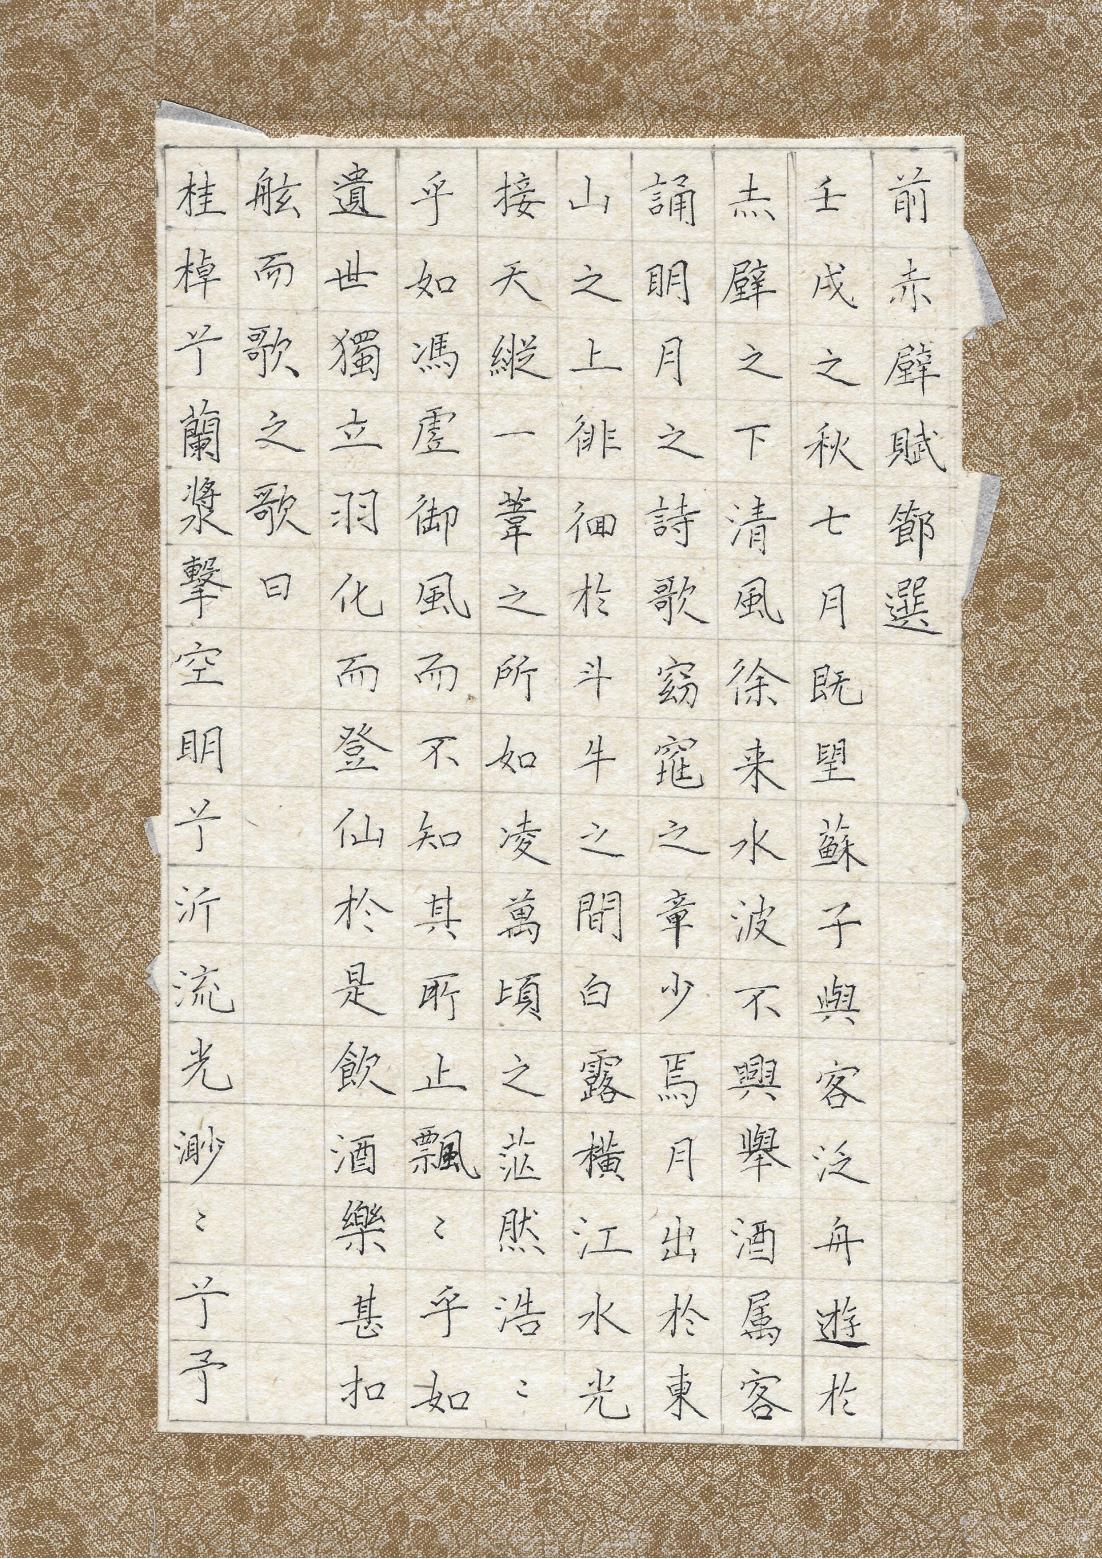 前赤壁賦節選
壬戌之秋七月既望蘇子與客泛舟遊於
赤壁之下清風徐来水波不興舉酒属客
誦明月之詩歌窈窕之章少焉月出於東
山之上徘徊於斗牛之間白露橫江水光
接天縦一葦之所如凌萬頃之茫然浩〻
乎如馮虛御風而不知其所止飄〻乎如
遺世獨立羽化而登仙於是飲酒樂甚扣
舷而歌之歌曰
桂棹兮蘭漿擊空明兮沂流光渺〻兮予